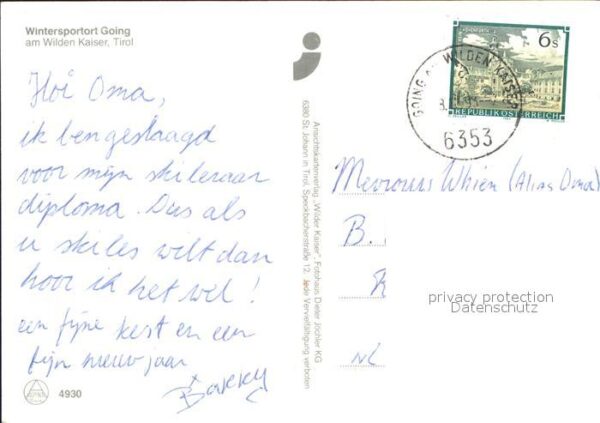 Wintersportort Going
am Wilden Kaiser, Tirol
Hoi Oma,
ik ben geslaagd
voor mijn skileraar
diploma. Dus als
u skiles wilt dan
hoor ik het wel!
een fijne kerst en een
fijn nieuwjaar
4930
Ansichtskartenverlag „Wilder Kaiser", Fotohaus Dieter Jöchler KG
6380 St. Johann in Tirol, Speckbacherstraße 12. Jede Vervielfältigung verboten
6s
REPUBLIK ÖSTERREICH
GOING AM WILDEN KAISER
6353
Mevrouw (Alias Oma)
B.
R
NL
privacy protection
Datenschutz